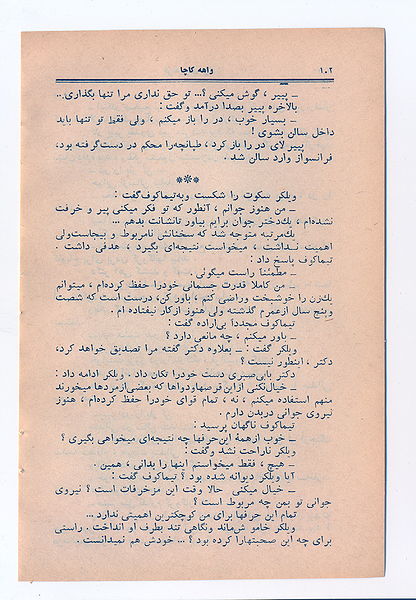 ۱۰۲ واهه کاچا
ـ پییر ، گوش میکنی ؟... تو حق نداری مرا تنها بگذاری..
بالاخره پییر بصدا درآمد وگفت :
ـ بسیار خوب ، در را باز میکنم ، ولی فقط تو تنها باید
داخل سالن بشوی !
پییر لای در را باز کرد ، طپانچه‌را محکم در دست‌گرفته بود،
فرانسواز وارد سالن شد .
***
ویلکر سکوت را شکست وبه‌تیماکوف‌گفت :
ـ من هنوز جوانم ، آنطور که تو فکر میکنی پیر و خرفت
نشده‌ام ، یك‌دختر جوان برایم بیاور تانشانت بدهم ...
یك‌مرتبه متوجه شد که سخنانش نامربوط و بیجاست‌ولی
اهمیت نداشت ، میخواست نتیجه‌ای بگیرد ، هدفی داشت .
تیماکوف پاسخ داد :
ـ مطمئناً راست میگوئی .
ـ من کاملا قدرت جسمانی خودرا حفظ کرده‌ام ، میتوانم
یك‌زن را خوشبخت وراضی کنم ، باور کن، درست است که شصت
وپنج سال ازعمرم گذشته ولی هنوز ازکار نیفتاده ام .
تیماکوف مجددا بی‌اراده گفت :
ـ باور میکنم ، چه مانعی دارد ؟
ویلکر گفت : ـ بعلاوه دکتر گفته مرا تصدیق خواهد کرد،
دکتر ، اینطور نیست ؟
دکتر بابی‌صبری دست خودرا تکان داد . ویلکر ادامه داد :
ـ خیال‌نکنی ازاین قرصهاودواها که بعضی‌ازمردها میخورند
منهم استفاده میکنم ، نه ، تمام قوای خودرا حفظ کرده‌ام ، هنوز
نیروی جوانی دربدن دارم .
تیماکوف ناگهان پرسید :
ـ خوب ازهمهٔ این‌حرفها چه نتیجه‌ای میخواهی بگیری ؟
ویلکر ناراحت نشد وگفت :
ـ هیچ ، فقط میخواستم اینها را بدانی ، همین .
آیا ویلکر دیوانه شده بود ؟ تیماکوف گفت :
ـ خیال میکنی حالا وقت این مزخرفات است ؟ نیروی
جوانی تو بمن چه مربوط است ؟
تمام این حرفها برای من کوچکترین اهمیتی ندارد ...
ویلکر خاموش شماند ونگاهی تند بطرف او انداخت . راستی
برای چه این صحبتهارا کرده بود ؟ ... خودش هم نمیدانست .